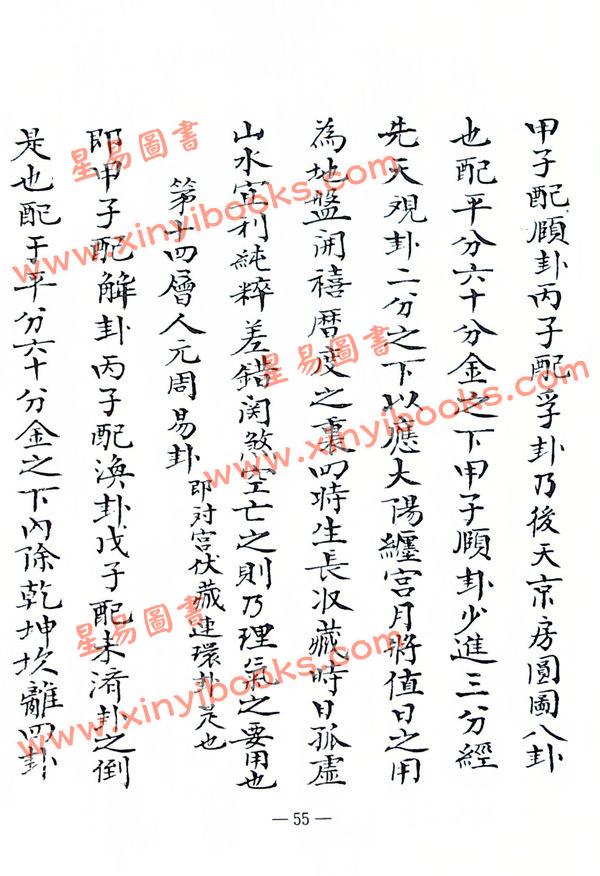 甲子配頤卦丙子配孚卦乃後天京房圓圖八卦
也配平分六十分金之下甲子頤卦少進三分經
先天观卦二分之下以應大陽纏宮月將值日之用
為地盤開禧曆度之裏四時生長収藏時日孤虛
山水宜利純粹差錯関煞空亡之則乃理氣之要用也
第十四層人元周易卦 即对宮伏藏連環卦是也
即甲子配解卦丙子配渙卦戊子配未濟卦之倒
是也配于平分六十分金之下內除乾坤坎離四卦
— 55 —
星易圖書
www.xinyibooks.com
星易圖書
www.xinyibooks.com
星易圖書
www.xinyibooks.com
星易圖書
www.xinyibooks.com